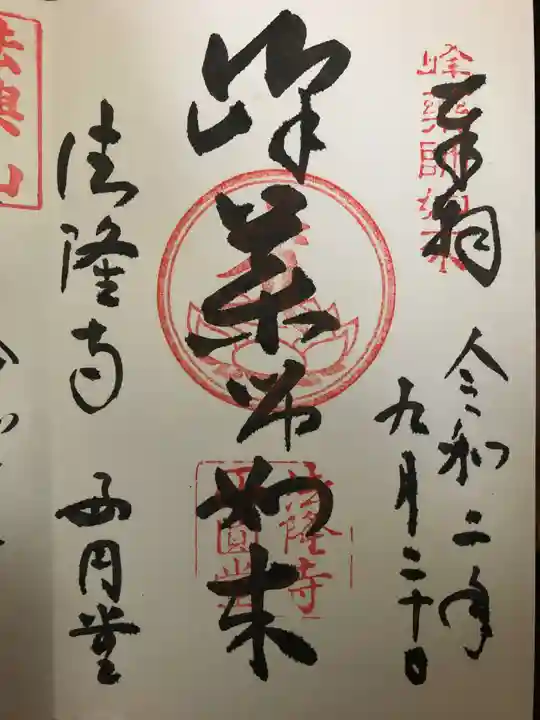 奉拝
峰薬師如来
令和二年
九月二十日
峰薬師如来
法隆寺
西円堂
法隆寺 西円堂